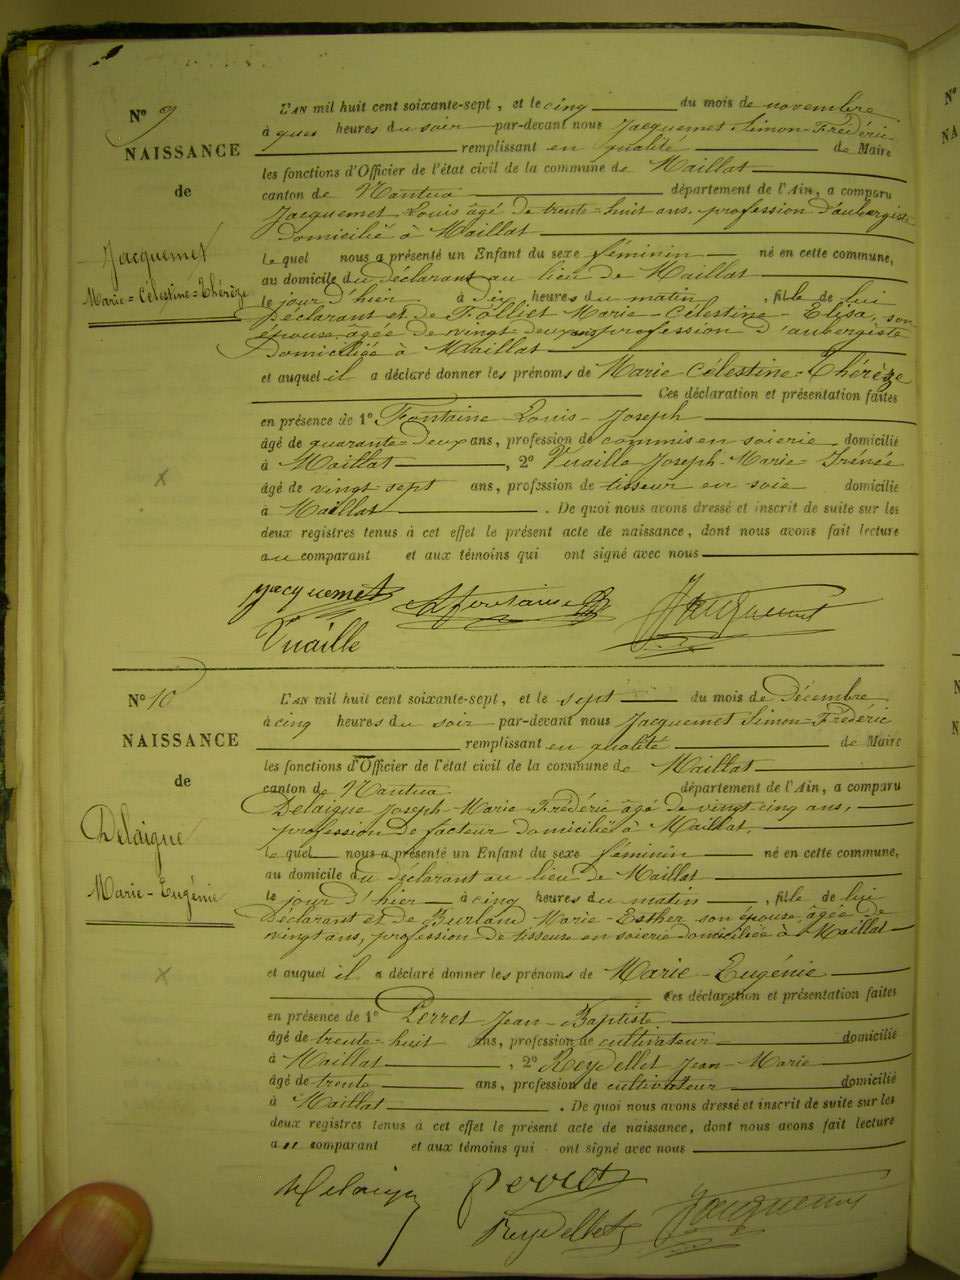 N° 9
NAISSANCE
de
Jacquemet
Marie-Célestine-Thérèze
L'AN mil huit cent soixante-sept, et le cinq du mois de novembre
à heures du soir par-devant nous Jacquemet Simon-Frédéric
remplissant en qualité de Maire
les fonctions d'Officier de l'état civil de la commune de Maillat
canton de Nantua département de l'Ain, a comparu
Jacquemet Louis âgé de trente-huit ans, profession d'aubergiste
domicilié à Maillat
le quel nous a présenté un Enfant du sexe féminin né en cette commune,
au domicile du déclarant au lieu de Maillat
le jour d'hier à dix heures du matin, fille de lui
déclarant et de Folliet Marie-Célestine-Elisa, son
épouse âgée de vingt deux ans profession d'aubergiste
domiciliée à Maillat
et auquel il a déclaré donner les prénoms de Marie Célestine-Thérèze
Ces déclaration et présentation faites
en présence de 1° Fontaine Louis-Joseph
âgé de quarante-deux ans, profession de commis en soierie domicilié
à Maillat, 2° Vuaille Joseph-Marie-Irénée
âgé de vingt sept ans, profession de tisseur en soie domicilié
à Maillat. De quoi nous avons dressé et inscrit de suite sur les
deux registres tenus à cet effet le présent acte de naissance, dont nous avons fait lecture
au comparant et aux témoins qui ont signé avec nous
Jacquemet Lfontaine Jacquemet
Vuaille
N° 10
NAISSANCE
de
Delaigue
Marie-Eugénie
L'AN mil huit cent soixante-sept, et le sept du mois de Décembre
à cinq heures du soir par-devant nous Jacquemet Simon-Frédéric
remplissant en qualité de Maire
les fonctions d'Officier de l'état civil de la commune de Maillat
canton de Nantua département de l'Ain, a comparu
Delaigue Joseph-Marie-Frédéric âgé de vingt cinq ans,
profession de facteur domicilié à Maillat,
le quel nous a présenté un Enfant du sexe féminin né en cette commune,
au domicile du déclarant au lieu de Maillat
le jour d'hier à cinq heures du matin, fille de lui
déclarant et de Burland Marie-Esther son épouse, âgée de
vingt ans, profession de tisseuse en soierie domiciliée à Maillat
et auquel il a déclaré donner les prénoms de Marie-Eugénie
Ces déclaration et présentation faites
en présence de 1° Perret Jean-Baptiste
âgé de trente-huit ans, profession de cultivateur domicilié
à Maillat, 2° Reydellet Jean-Marie
âgé de trente ans, profession de cultivateur domicilié
à Maillat. De quoi nous avons dressé et inscrit de suite sur les
deux registres tenus à cet effet le présent acte de naissance, dont nous avons fait lecture
au comparant et aux témoins qui ont signé avec nous
Delaigue Perret
Reydellet Jacquemet